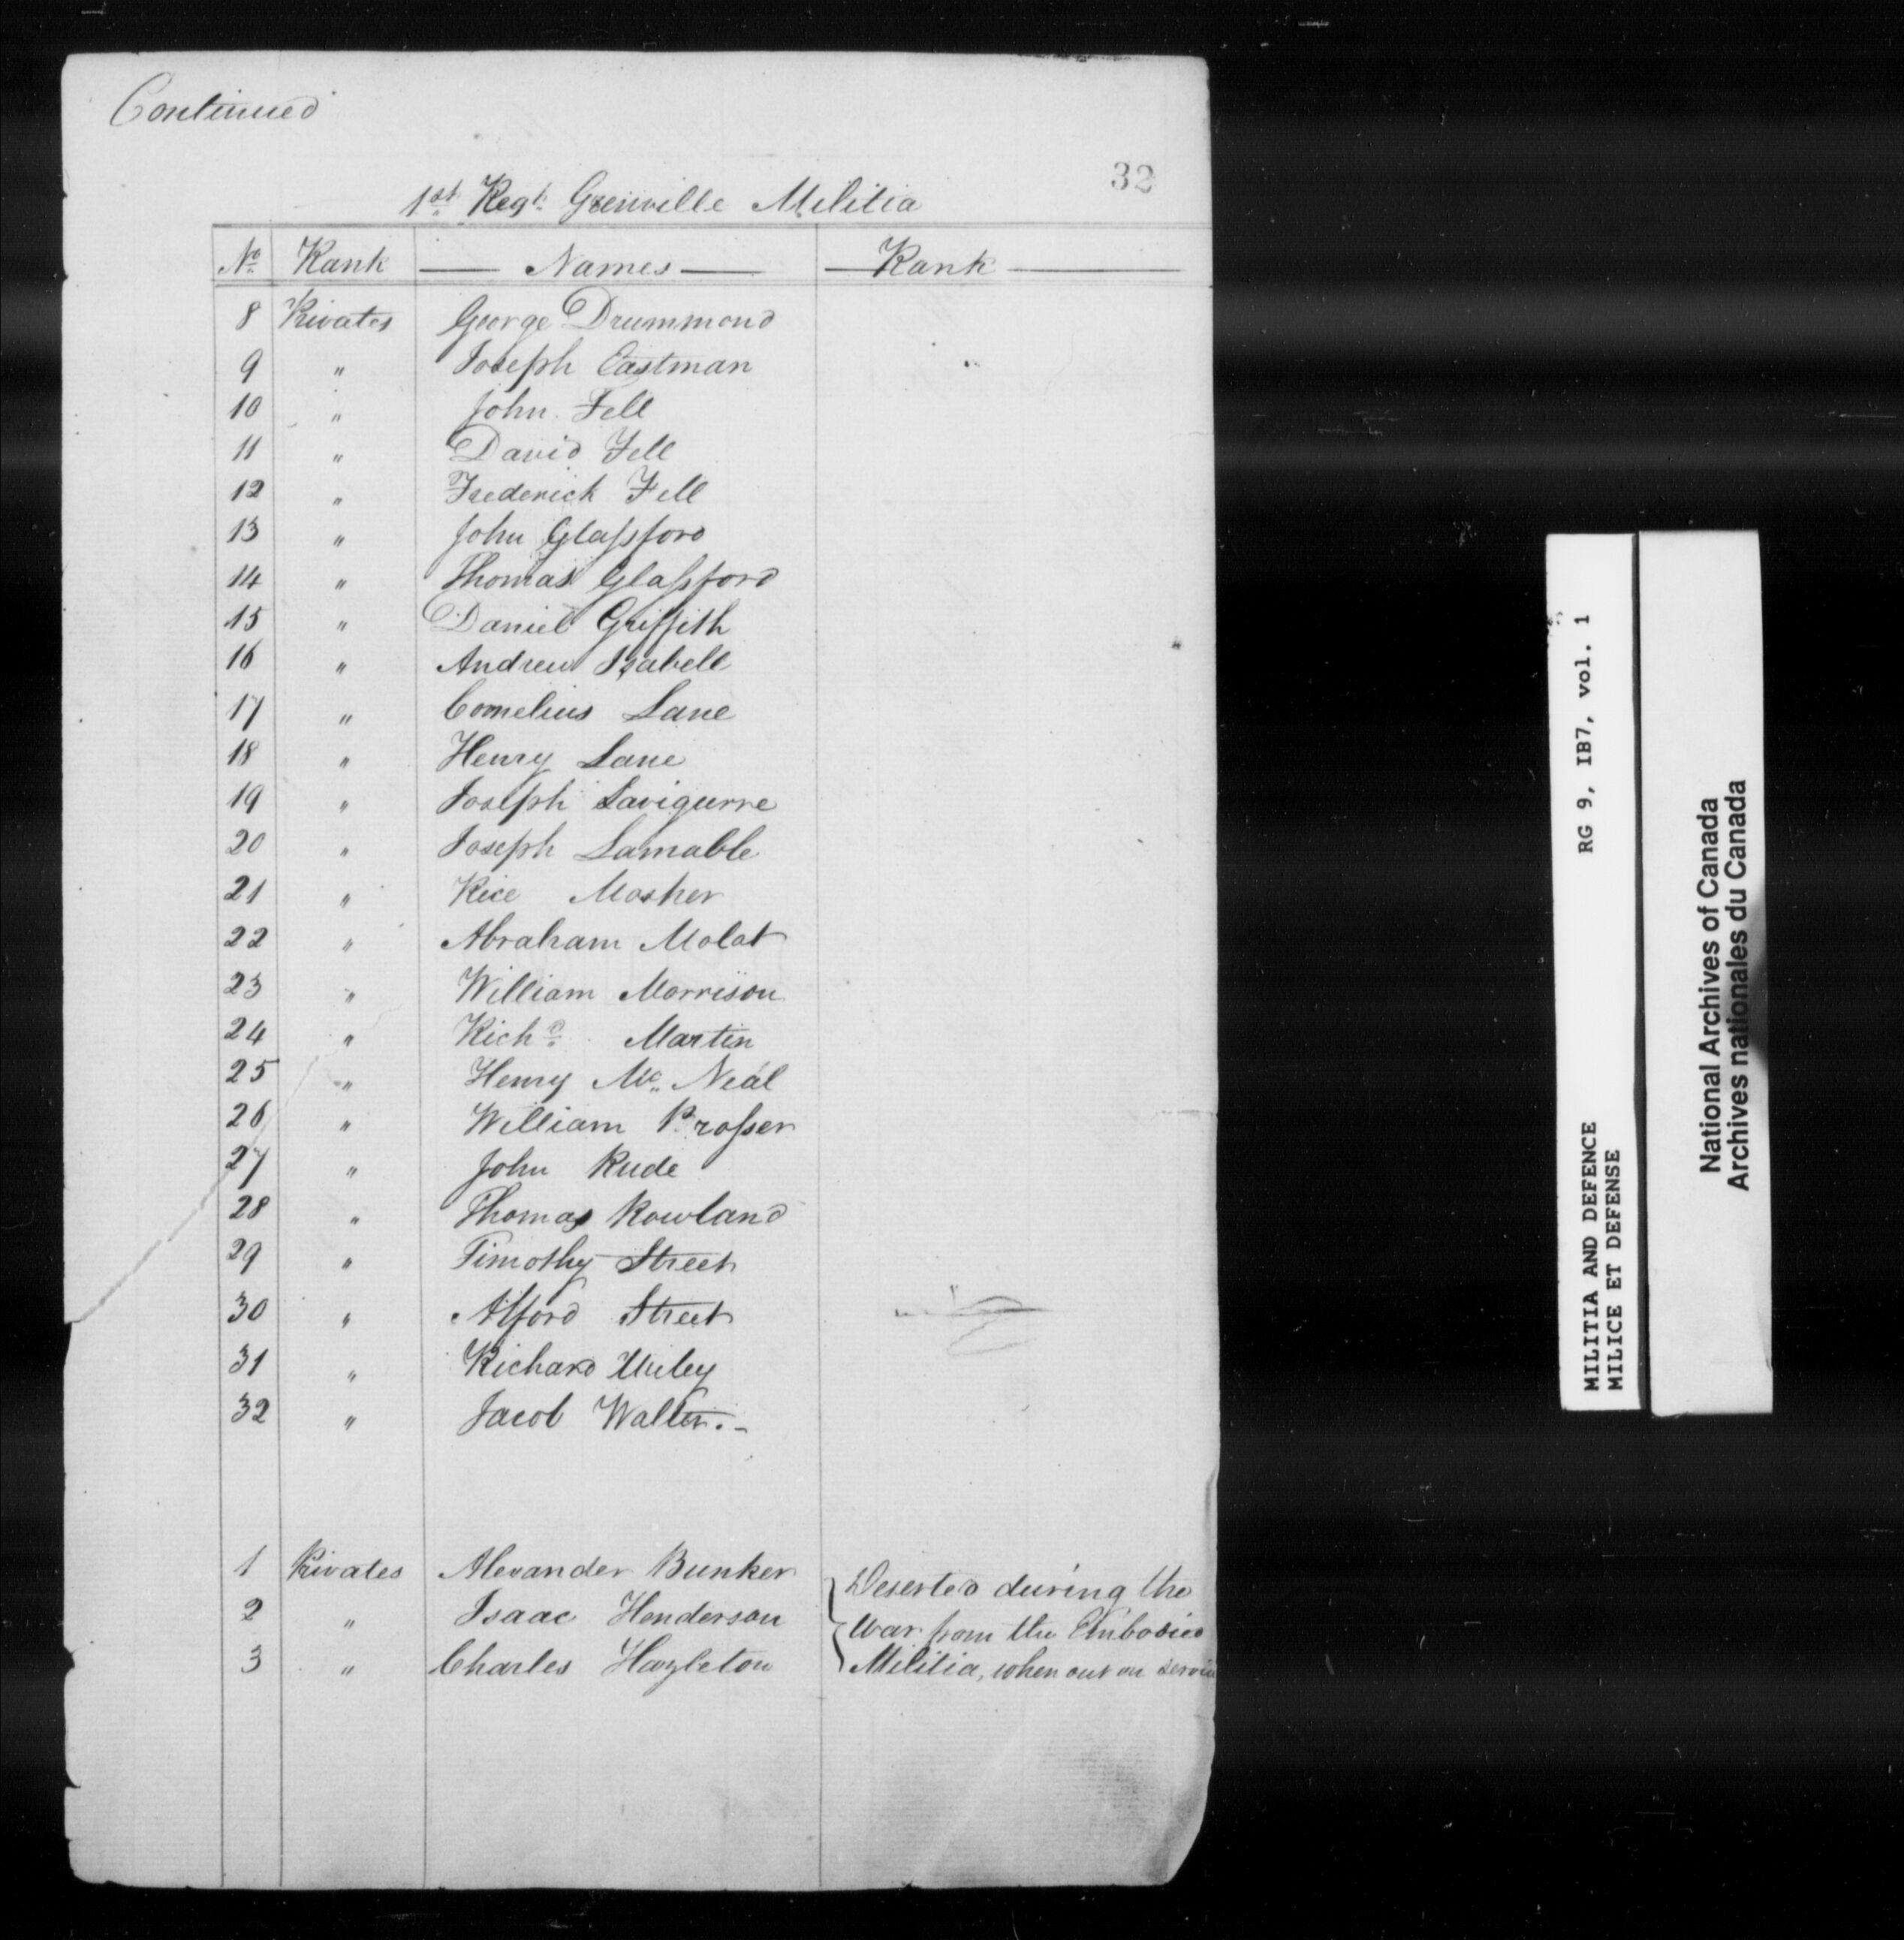 Continued
32
1st Regt Grenville Militia
No Rank Names Rank
8 Privates George Drummond
9 " Joseph Eastman
10 " John Fell
11 " David Fell
12 " Frederick Fell
13 " John Glassford
14 " Thomas Glassford
15 " Daniel Griffith
16 " Andrew Isabell
17 " Cornelius Lane
18 " Henry Lane
19 " Joseph Lavigurre
20 " Joseph Lamable
21 " Rice Mosher
22 " Abraham Molat
23 " William Morrison
24 " Richd Martin
25 " Henry Mc Neal
26 " William Prosser
27 " John Rude
28 " Thomas Rowland
29 " Timothy Street
30 " Alford Street
31 " Richard
32 " Jacob Walter.-
1 Privates Alexander Bunker Deserted during the
2 " Isaac Henderson war from the Embodied
3 " Charles Hazleton Militia, when out on service
MILITIA AND DEFENCE RG 9, IB7, vol. 1
MILICE ET DEFENSE
National Archives of Canada
Archives nationales du Canada